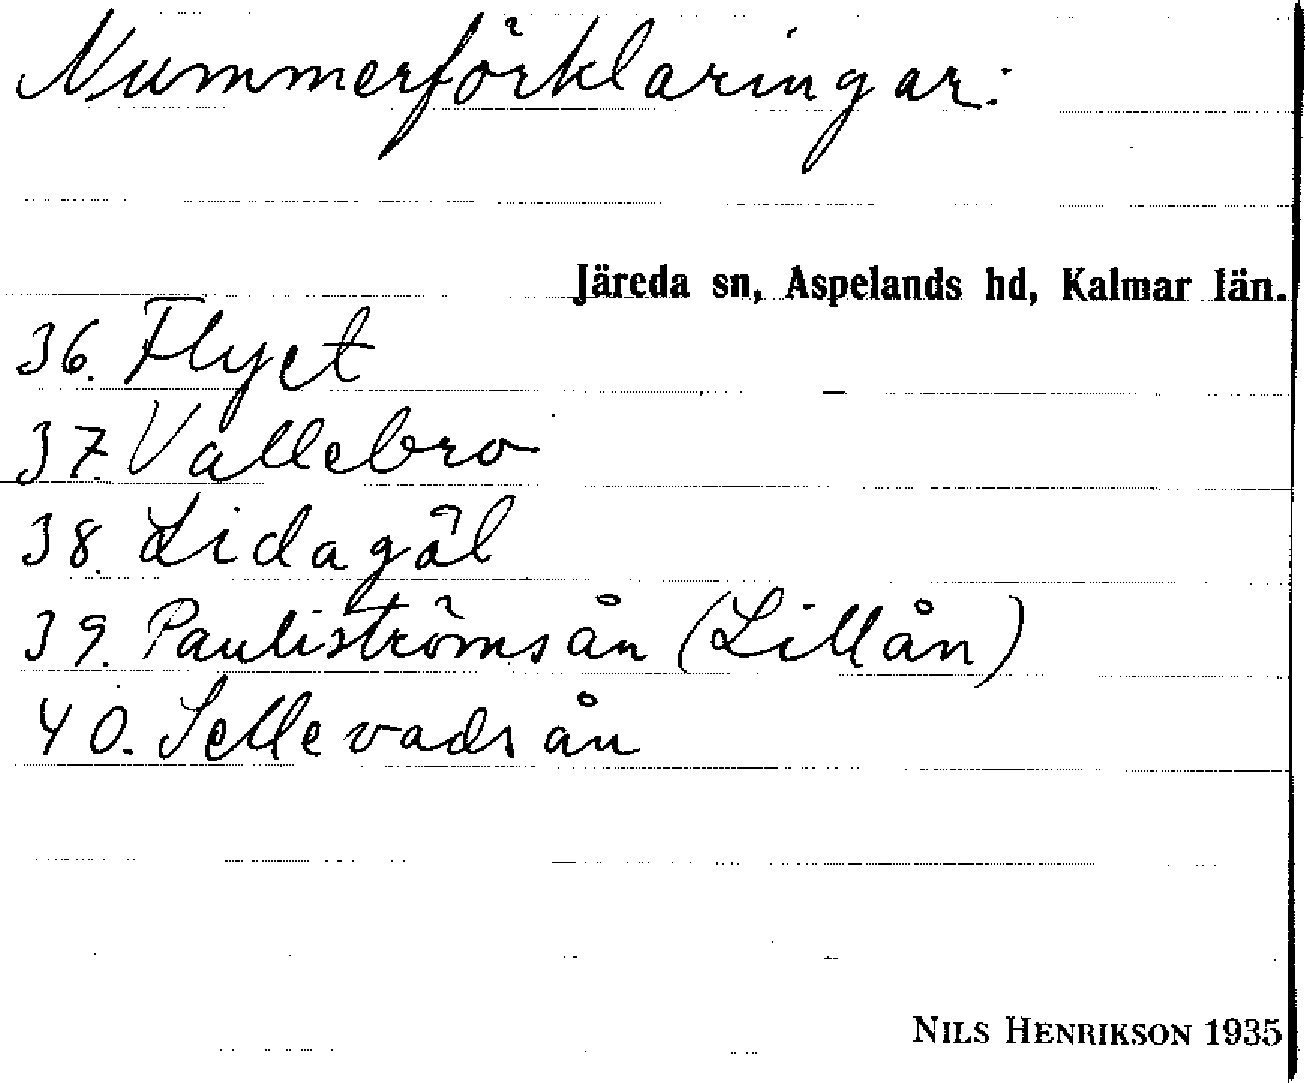 Nummerförklaringar:
Järeda sn, Aspelands hd, Kalmar län.
36. Flyet
37. Vallebro
38. Lidagöl
39. Pauliströmsån (Lillån)
40. Sellevadsån
NILS HENRIKSON 1935